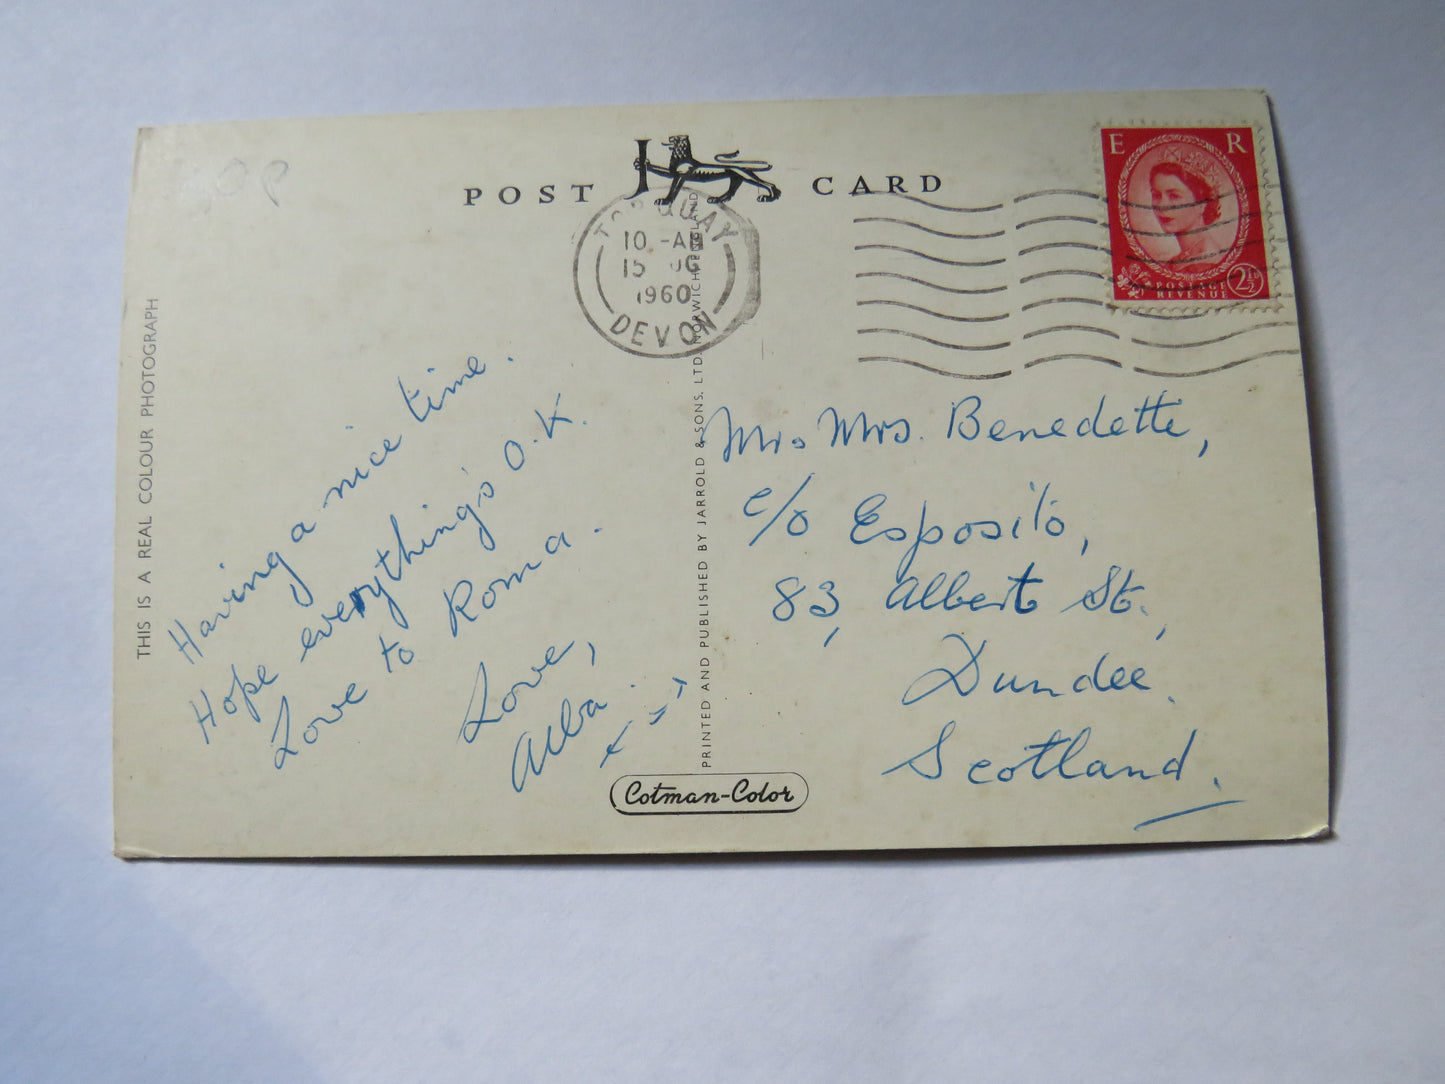 POST CARD
E R
POSTAGE
REVENUE
2½D
TORQUAY
10 - AM
15 AUG
1960
DEVON
THIS IS A REAL COLOUR PHOTOGRAPH
Having a nice time.
Hope everything's O.K.
Love to Roma.
Love,
Alba.
PRINTED AND PUBLISHED BY JARROLD & SONS, LTD. NORWICH ENGLAND
Mr. Mrs. Benedette,
c/o Esposito,
83, Albert St.,
Dundee.
Scotland.
Cotman-Color